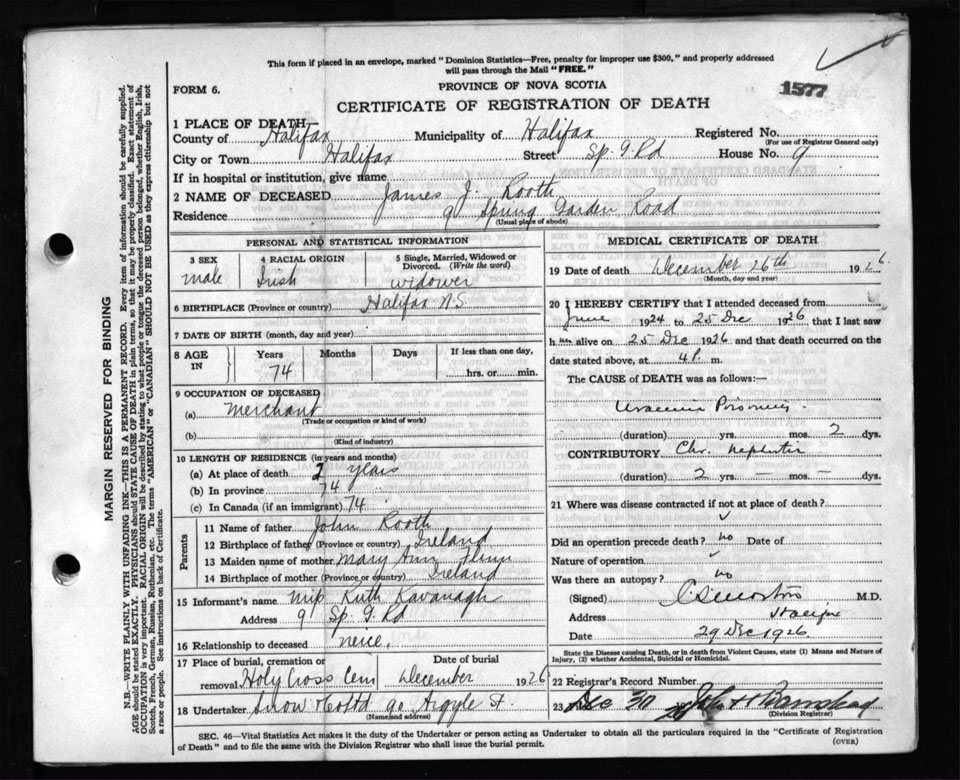 This form if placed in an envelope, marked "Dominion Statistics—Free, penalty for improper use $300," and properly addressed
will pass through the Mail "FREE."
1577
FORM 6.
PROVINCE OF NOVA SCOTIA
CERTIFICATE OF REGISTRATION OF DEATH
1 PLACE OF DEATH—
County of Halifax Municipality of Halifax Registered No.
(For use of Registrar General only)
City or Town Halifax Street Sp. G. Rd House No. 9
If in hospital or institution, give name
2 NAME OF DECEASED James J. Rooth
Residence 9 Spring Garden Road
(Usual place of abode)
MARGIN RESERVED FOR BINDING
N.B.—WRITE PLAINLY WITH UNFADING INK—THIS IS A PERMANENT RECORD. Every item of information should be carefully supplied.
AGE should be stated EXACTLY. PHYSICIANS should STATE CAUSE OF DEATH in plain terms, so that it may be properly classified. Exact statement of
OCCUPATION is very important. RACIAL ORIGIN will be described by stating to what people or tongue the deceased person belonged, whether English, Irish,
Scotch, French, German, Russian, Ruthenian, etc. The terms "AMERICAN" or "CANADIAN" SHOULD NOT BE USED as they express citizenship but not
a race or people. See instructions on back of Certificate.
PERSONAL AND STATISTICAL INFORMATION
3 SEX
male
4 RACIAL ORIGIN
Irish
5 Single, Married, Widowed or
Divorced. (Write the word)
widower
6 BIRTHPLACE (Province or country) Halifax N.S.
7 DATE OF BIRTH (month, day and year)
8 AGE
IN
Years
74
Months
Days
If less than one day,
hrs. or min.
9 OCCUPATION OF DECEASED
(a) Merchant
(Trade or occupation or kind of work)
(b)
(Kind of industry)
10 LENGTH OF RESIDENCE (in years and months)
(a) At place of death 2 years
(b) In province 74 "
(c) In Canada (if an immigrant) 74 "
Parents
11 Name of father John Rooth
12 Birthplace of father (Province or country) Ireland
13 Maiden name of mother Mary Ann Flinn
14 Birthplace of mother (Province or country) Ireland
15 Informant's name Ruth Kavanagh
Address 9 Sp. G. Rd
16 Relationship to deceased neice.
17 Place of burial, cremation or
removal Holy Cross Cem
Date of burial
December 1926
18 Undertaker Snow & Co Ltd 90 Argyle St.
(Name and address)
MEDICAL CERTIFICATE OF DEATH
19 Date of death December 26th 1926.
(Month, day and year)
20 I HEREBY CERTIFY that I attended deceased from
June 1924 to 25 Dec 1926 that I last saw
h im alive on 25 Dec 1926 and that death occurred on the
date stated above, at 4 P. m.
The CAUSE of DEATH was as follows:—
Uraemic Poisoning.
(duration) yrs. mos. 2 dys.
CONTRIBUTORY Chr. Nephritis
(duration) 2 yrs. — mos. — dys.
21 Where was disease contracted if not at place of death?
Did an operation precede death? no Date of
Nature of operation
Was there an autopsy? no
(Signed) M.D.
Address Halifax
Date 29 Dec 1926.
State the Disease causing Death, or in death from Violent Causes, state (1) Means and Nature of
Injury, (2) whether Accidental, Suicidal or Homicidal.
22 Registrar's Record Number
23 Dec 30 26 John H
(Division Registrar)
SEC. 46—Vital Statistics Act makes it the duty of the Undertaker or person acting as Undertaker to obtain all the particulars required in the "Certificate of Registration
of Death" and to file the same with the Division Registrar who shall issue the burial permit.
(OVER)